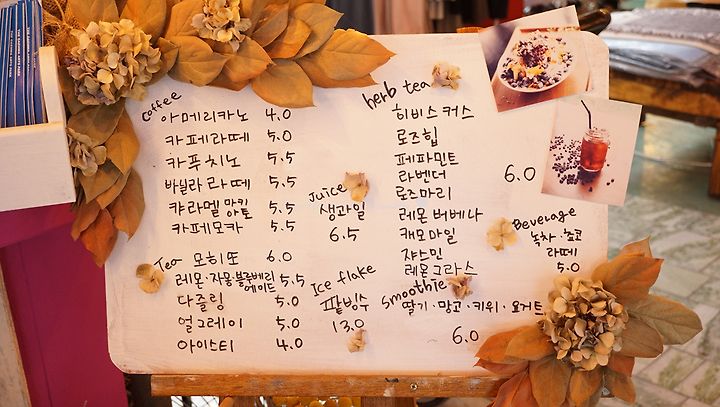 Coffee
아메리카노 4.0
카페라떼 5.0
카푸치노 5.5
바닐라 라떼 5.5
캬라멜 마끼아또 5.5
카페모카 5.5
Tea 모히또 6.0
레몬·자몽·블루베리 에이드 5.5
다즐링 5.0
얼그레이 5.0
아이스티 4.0
Juice
생과일
6.5
Ice flake
팥빙수
13.0
herb tea
히비스커스
로즈힙
페퍼민트
라벤더 6.0
로즈마리
레몬 버베나
캐모마일
쟈스민
레몬그라스
Smoothie
딸기·망고·키위·요거트
6.0
Beverage
녹차·쵸코
라떼
5.0